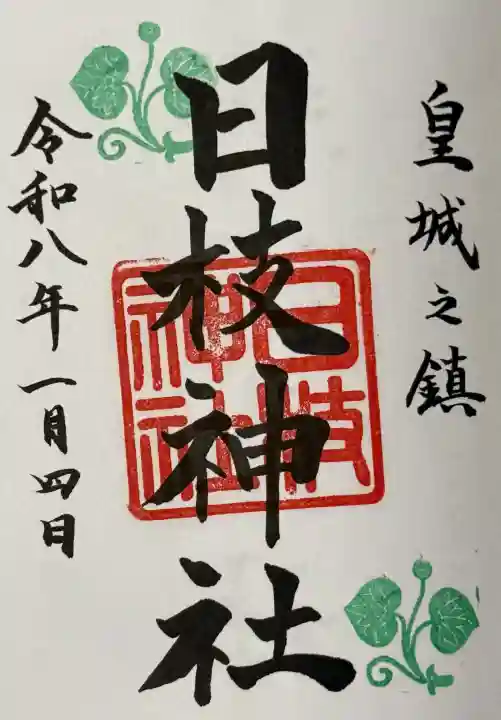 皇城之鎮
日枝神社
日枝
神社
令和八年一月四日